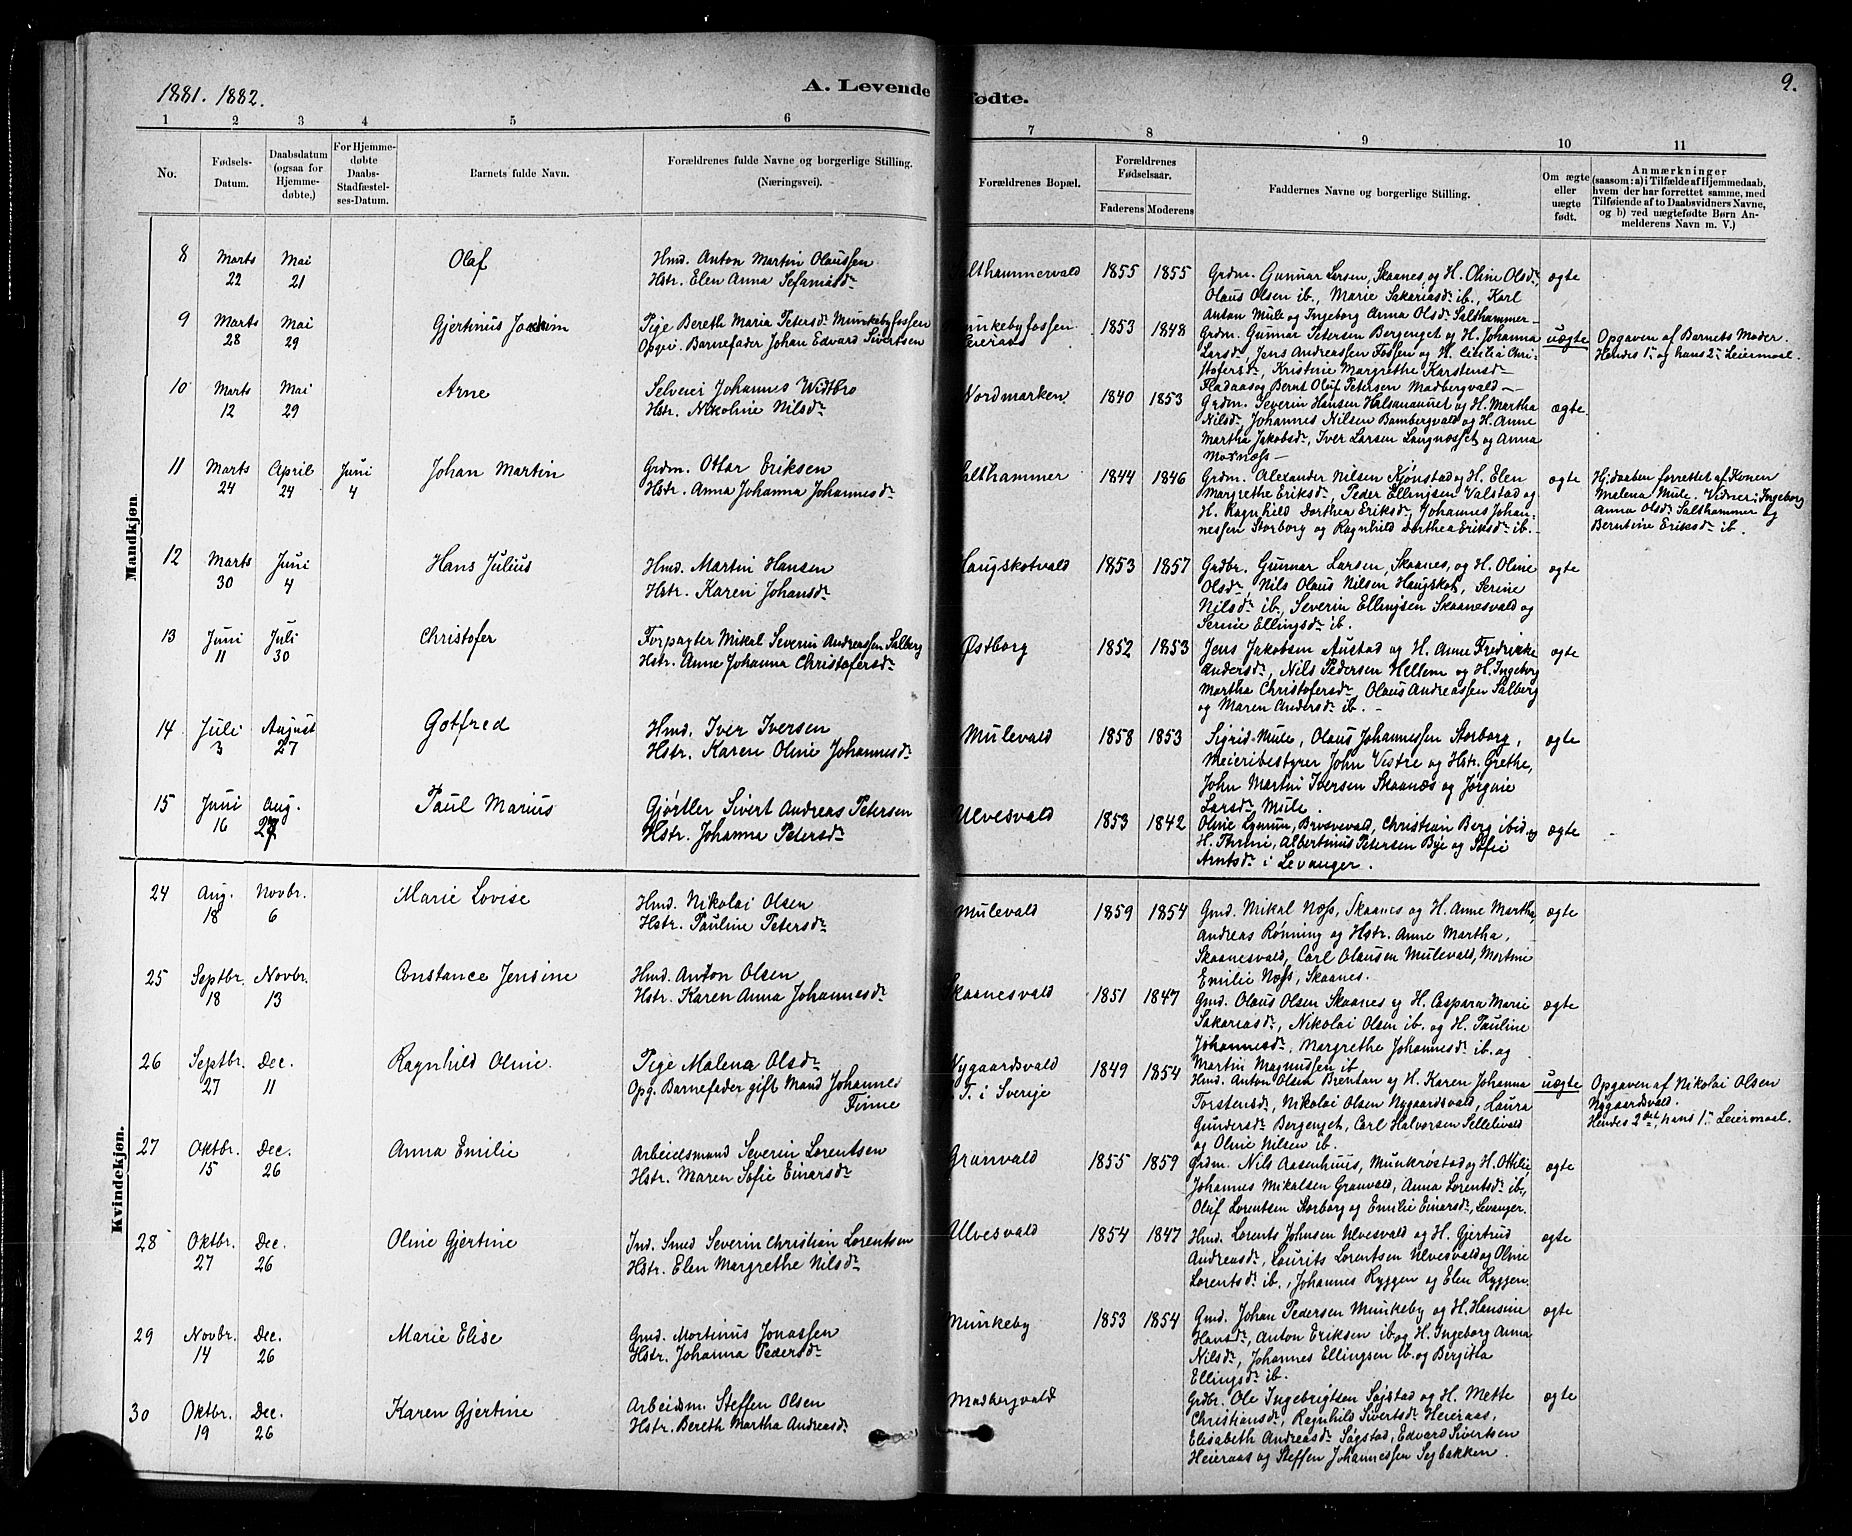 1881. 1882.
A. Levende fødte.
9.
1 2 3 4 5 6 7 8 9 10 11
No.
Fødsels-Datum.
Daabsdatum (ogsaa for Hjemmedøbte.)
For Hjemmedøbte Daabs-Stadfæstelses-Datum.
Barnets fulde Navn.
Forældrenes fulde Navne og borgerlige Stilling. (Næringsvei).
Forældrenes Bopæl.
Forældrenes Fødselsaar.
Faderens Moderens
Faddernes Navne og borgerlige Stilling.
Om ægte eller uægte født.
Anmærkninger (saasom: a) i Tilfælde af Hjemmedaab, hvem der har forrettet samme, med Tilføiende af to Daabsvidners Navne, og b) ved uægtefødte Børn Anmelderens Navn m. V.)
Mandkjøn.
8 Marts 22 Mai 21 Olaf
Hmd. Anton Martin Olaussen
Hstr. Elen Anna Sefaniasdr
Salthammervald 1855 1855
Grdm. Gunnar Larsen, Skaanes, og H. Oline Olsdr,
Olaus Olsen ib., Marie Sakariasdr ib., Karl
Anton Mule og Ingeborg Anna Olsdr Salthammer
ægte
9 Marts 28 Mai 29 Gjertinus Joakim
Pige Bereth Maria Petersdr Munkebyfossen
Opgiv. Barnefader Johan Edvard Sivertsen
Munkebyfossen
Heieraas
1853 1848
Grdm. Gunnar Petersen Borgenget og H. Johanna
Larsdr, Jens Andreassen Fossen og H. Cecilie Chri-
stofersdr, Kristine Margrethe Karstensdr
Fladaas og Bernt Oluf Petersen Madbergvald
uægte
Opgaven af Barnets Moder.
Hendes 1ste og hans 2de Leiermaal.
10 Marts 12 Mai 29 Arne
Selveier Johannes Widtbro
Hstr. Nikoline Nilsdr
Nordmarken 1840 1853
Grdm. Severin Hansen Halsanaunet og H. Martha
Nilsdr, Johannes Nilsen Bambergvald og H. Anne
Martha Jakobsdr, Iver Larsen Langnæsset og Anna
Marnæss
ægte
11 Marts 24 April 24 Juni 4 Johan Martin
Grdm. Ottar Eriksen
Hstr. Anna Johanna Johannesdr
Salthammer 1844 1846
Grdm. Alexander Nilsen Kjønstad og H. Elen
Margrethe Eriksdr, Peder Ellingsen Valstad og
H. Ragnhild Dorthea Eriksdr, Johannes Johan-
nessen Storborg og Ragnhild Dorthea Eriksdr ib.
ægte
Hj.daaben forrettet af Konen
Malena Mule. Vidner: Ingeborg
Anna Olsdr Salthammer og
Berntine Eriksdr ib.
12 Marts 30 Juni 4 Hans Julius
Hmd. Martin Hansen
Hstr. Karen Johansdr
Haugskotvald 1853 1857
Grdbr. Gunnar Larsen, Skaanes, og H. Oline
Olsdr, Nils Olaus Nilsen Haugskot, Serine
Nilsdr ib., Severin Ellingsen Skaanesvald og
Serine Ellingsdr ib.
ægte
13 Juni 11 Juli 30 Christofer
Forpagter Mikal Severin Andreassen Salberg
Hstr. Anne Johanna Christofersdr
Østborg 1852 1853
Jens Jakobsen Austad og H. Anne Fredrikke
Andersdr, Nils Pedersen Hellem og H. Ingeborg
Martha Christofersdr, Olaus Andreassen Salberg
og Maren Andersdr ib.
ægte
14 Juli 3 August 27 Gotfred
Hmd. Iver Iversen
Hstr. Karen Oline Johannesdr
Mulevald 1858 1853
Sigrid Mule, Olaus Johannessen Storborg,
Meieribestyrer John Vistre og Hstr. Grethe,
John Martin Iversen Skaanæs og Jørgine
Larsdr Mule.
ægte
15 Juni 16 Aug. 27 Paul Marius
Gjørtler Sivert Andreas Petersen
Hstr. Johanna Petersdr
Ulvesvald 1853 1842
Oline Lynum, Brusvevald, Christian Berg ibid. og
H. Thrine, Albertinus Petersen Bye og Sofie
Arntsdr i Levanger.
ægte
Kvindekjøn.
24 Aug. 18 Novbr. 6 Marie Lovise
Hmd. Nikolai Olsen
Hstr. Pauline Petersdr
Mulevald 1859 1854
Gmd. Mikal Næss, Skaanes og H. Anne Martha,
Andreas Rønning og Hstr. Anne Martha,
Skaanesvald, Carl Olausen Mulevald, Martine
Emilie Næss, Skaanes.
ægte
25 Septbr. 18 Novbr. 13 Constance Jensine
Hmd. Anton Olsen
Hstr. Karen Anna Johannesdr
Skaanesvald 1851 1847
Gmd. Olaus Olsen Skaanes og H. Caspara Marie
Sakariasdr, Nikolai Olsen ib. og H. Pauline
Johannesdr, Margrethe Johannesdr ib. og
Martin Magnussen ib
ægte
26 Septbr. 27 Dec. 11 Ragnhild Oline.
Pige Malena Olsdr
Opg. Barnefader gift Mand Johannes
Finne
Nygaardsvald
F. T. i Sverige
1849 1854
Hmd. Anton Olsen Brentan og H. Karen Johanna
Torstensdr, Nikolai Olsen Nygaardsvald, Laura
Gundersdr Bergenget, Carl Halvorsen Sellelivald
og Oline Nilsen ib.
uægte
Opgaven af Nikolai Olsen
Nygaardsvald.
Hendes 2det, hans 1ste Leiermaal.
27 Oktbr. 15 Dec. 26 Anna Emilie
Arbeidsmand Severin Lorentsen
Hstr. Maren Sofie Einarsdr
Granvald 1855 1859
Grdm. Nils Aasenhuus, Munkrøstad og H. Ottilie,
Johannes Mikalsen Granvald, Anna Lorentsdr ib.,
Olaf Lorentsen Storborg og Emilie Einarsdr, Levanger.
ægte
28 Oktbr. 27 Dec. 26 Oline Gjertine
Ind. Smed Severin Christian Lorentsen
Hstr. Elen Margrethe Nilsdr
Ulvesvald 1854 1847
Hmd. Lorents Johnsen Ulvesvald og H. Gjertrud
Andreasdr, Laurits Lorentsen Ulvesvald og Oline
Lorentsdr ib., Johannes Ryggen og Elen Ryggen.
ægte
29 Novbr. 14 Dec. 26 Marie Elise
Gmd. Mortinus Jonassen
Hstr. Johanna Pedersdr
Munkeby 1853 1854
Gmd. Johan Pedersen Munkeby og H. Hansine
Hansdr, Anton Eriksen ib. og H. Ingeborg Anna
Nilsdr, Johannes Ellingsen ib. og Bergitta
Ellingsdr ib.
ægte
30 Oktbr. 19 Dec. 26 Karen Gjertine
Arbeidsm. Steffen Olsen
Hstr. Bereth Martha Andreasdr
Madbergvald
Grdbr. Ole Ingebrigtsen Søgstad og H. Mette
Christiansdr, Ragnhild Sivertsdr Heieraas,
Elisabeth Andreasdr Søgstad, Edvard Sivertsen
Heieraas og Steffen Johannessen Sejbakken.
ægte